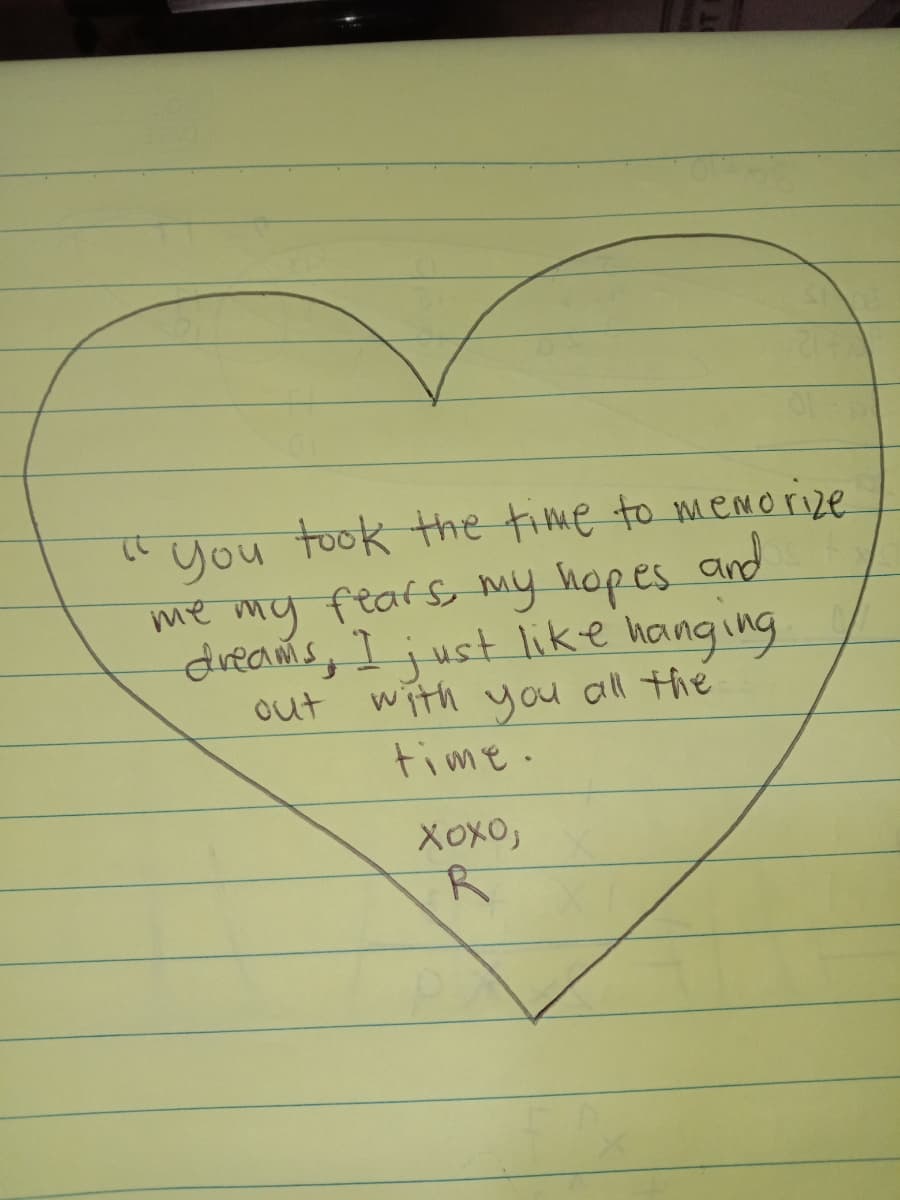 “ you took the time to memorize
me my fears, my hopes and
dreams, I just like hanging
out with you all the
time.
xoxo,
R